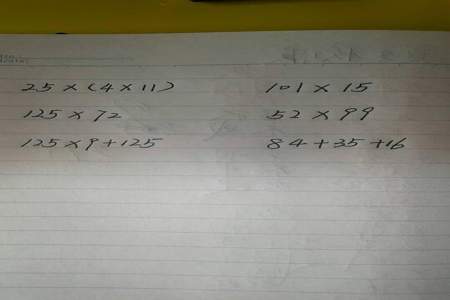 25×(4×11) 101×15
125×72 52×99
125×9+125 84+35+16